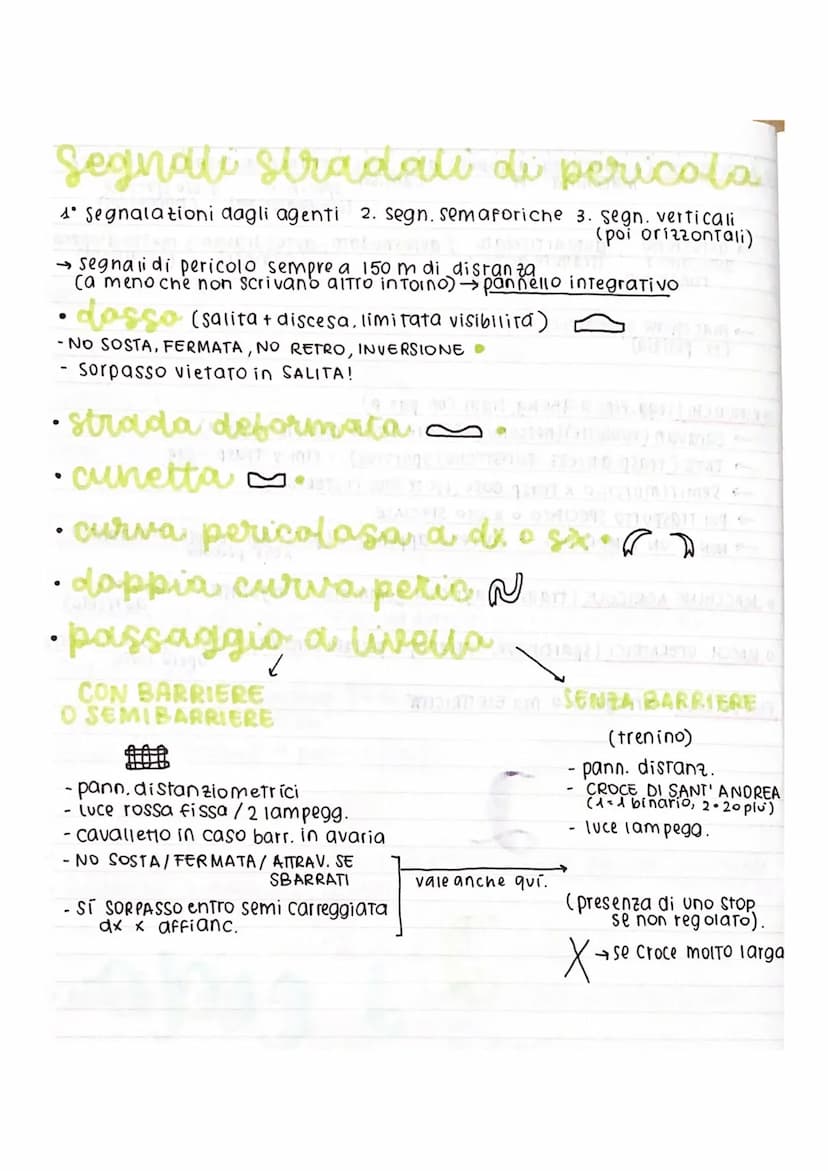 Segnali stradali di pericolo
1° Segnalazioni dagli agenti 2. Segn. semaforiche 3. segn. verticali
(poi orizzontali)
→ segnali di pericolo sempre a 150 m di distanza
(a meno che non scrivano altro intorno) → pannello integrativo
• dosso (salita + discesa, limitata visibilità)
- NO SOSTA, FERMATA, NO RETRO, INVERSIONE
- Sorpasso vietato in SALITA!
• strada deformata
• cunetta
• curva pericolosa a dx o sx
• doppia curva peric
• passaggio a livello
CON BARRIERE
O SEMIBARRIERE
- pann. distanziometrici
- luce rossa fissa / 2 lampegg.
- cavalletto in caso barr. in avaria
- NO SOSTA / FERMATA / ATTRAV. SE
SBARRATI
- SÌ SORPASSO entro semi carreggiata
dx x affianc.
vale anche qui.
SENZA BARRIERE
(trenino)
- pann. distanz.
- CROCE DI SANT' ANDREA
(1=1 binario, 2=2 o più)
- luce lampegg.
(presenza di uno stop
se non regolato).
→ se croce molto larga